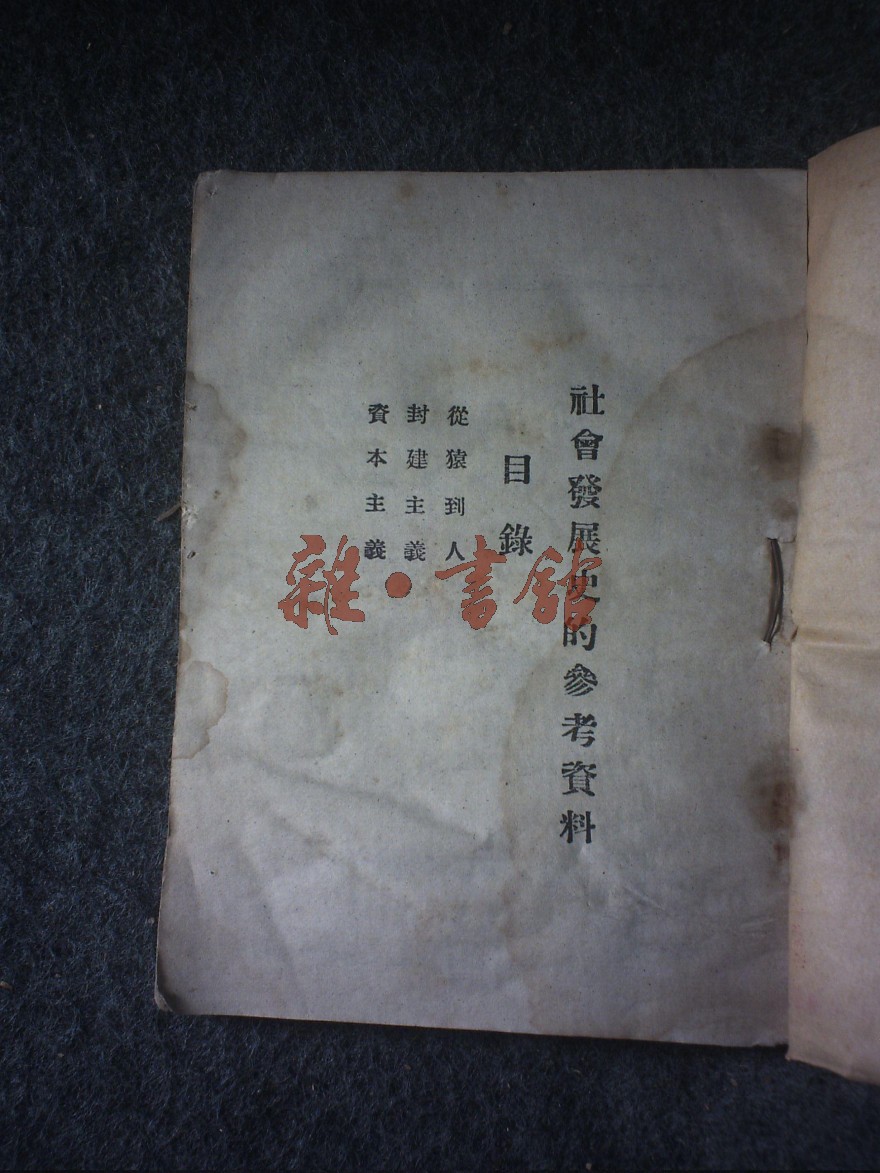 社會發展史的參考資料
目錄
從猿到人
封建主義
資本主義
雜·書館